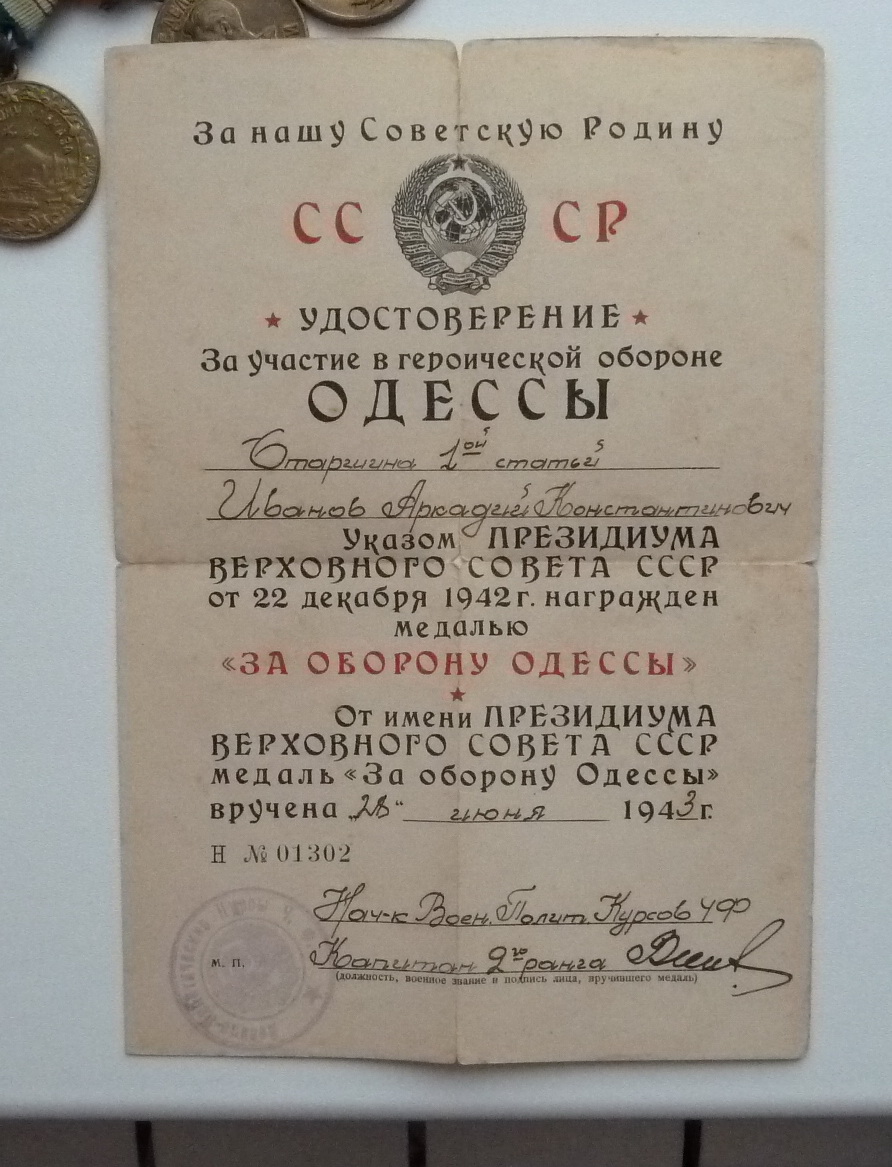 За нашу Советскую Родину
СССР
УДОСТОВЕРЕНИЕ
За участие в героической обороне
ОДЕССЫ
Старшина 1ой статьи
Иванов Аркадий Константинович
Указом ПРЕЗИДИУМА
ВЕРХОВНОГО СОВЕТА СССР
от 22 декабря 1942 г. награжден
медалью
«ЗА ОБОРОНУ ОДЕССЫ»
От имени ПРЕЗИДИУМА
ВЕРХОВНОГО СОВЕТА СССР
медаль «За оборону Одессы»
вручена „28“ июня 1943 г.
Н № 01302
Нач-к Воен. Полит. Курсов ЧФ
Капитан 2го ранга
м. п.
(должность, военное звание и подпись лица, вручившего медаль)